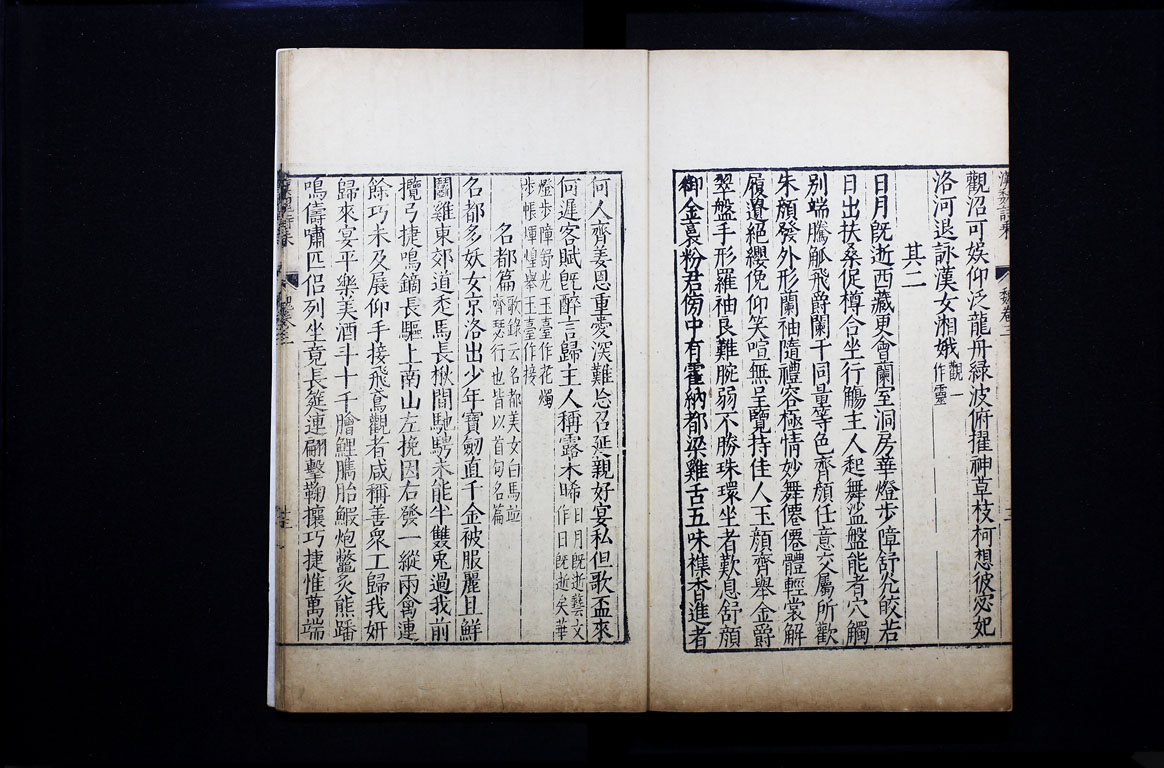 觀沼可娛仰泛龍舟綠波俯擢神草枝柯想彼宓妃
洛河退詠漢女湘娥觀一作靈
其二
日月旣逝西藏更會蘭室洞房華燈步障舒光皎若
日出扶桑促樽合坐行觴主人起舞盤能者穴觸
別端騰觚飛爵闌干同量等色齊顏任意交屬所歡
朱顏發外形蘭袖隨禮容極情妙舞僊僊體輕裳解
履遺絕纓俛仰笑喧無呈覽持佳人玉顏齊舉金爵
翠盤手形羅袖良難腕弱不勝珠環坐者歎息舒顏
御金裛粉君傍中有霍納都梁雞舌五味雜香進者
何人齊姜恩重愛深難忘召延親好宴私但歌盃來
何遲客賦旣醉言歸主人稱露未晞日月旣逝藝文作日旣逝矣華
燈步障舒光玉臺作花燭步帳煇煌舉玉臺作接
名都篇歌錄云名都美女白馬並齊瑟行也皆以首句名篇
名都多妖女京洛出少年寶劒直千金被服麗且鮮
鬬雞東郊道走馬長楸間馳騁未能半雙兎過我前
攬弓捷鳴鏑長驅上南山左挽因右發一縱兩禽連
餘巧未及展仰手接飛鳶觀者咸稱善衆工歸我妍
歸來宴平樂美酒斗十千膾鯉臇胎鰕炮鼈炙熊蹯
鳴儔嘯匹侶列坐竟長筵連翩擊鞠壤巧捷惟萬端